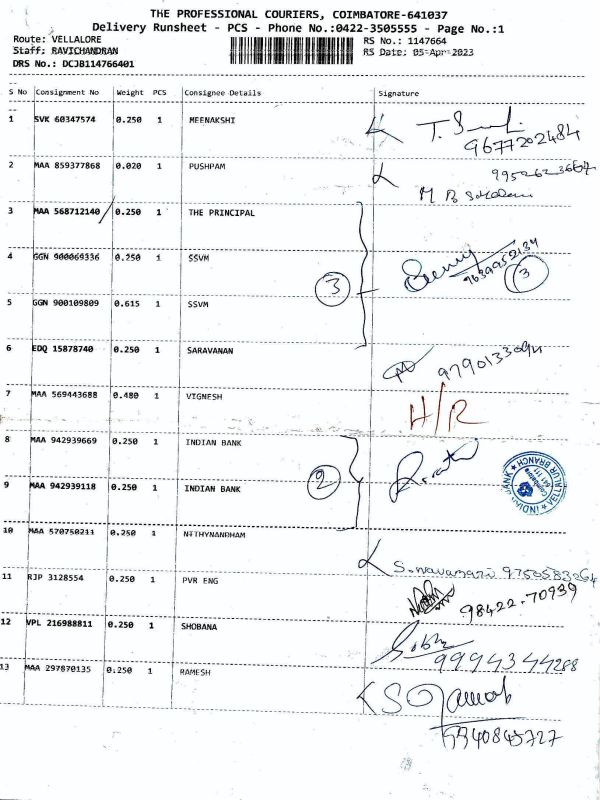 THE PROFESSIONAL COURIERS, COIMBATORE-641037
Delivery Runsheet - PCS - Phone No.:0422-3505555 - Page No.:1
Route: VELLALORE RS No.: 1147664
Staff: RAVICHANDRAN RS Date: 05-Apr-2023
DRS No.: DCJB114766401
S No Consignment No Weight PCS Consignee Details Signature
1 SVK 60347574 0.250 1 MEENAKSHI
9677202484
2 MAA 859377868 0.020 1 PUSHPAM
3 MAA 568712140 0.250 1 THE PRINCIPAL
4 GGN 900069336 0.250 1 SSVM
3 9639952134 3
5 GGN 900109809 0.615 1 SSVM
6 EDQ 15878740 0.250 1 SARAVANAN
7 MAA 569443688 0.480 1 VIGNESH H/R
8 MAA 942939669 0.250 1 INDIAN BANK
2
9 MAA 942939118 0.250 1 INDIAN BANK
INDIAN BANK ★ VELLALUR BRANCH ★
Coimbatore
641 111
10 MAA 570750211 0.250 1 NITHYNANDHAM
11 RJP 3128554 0.250 1 PVR ENG
98422-70939
12 VPL 216988811 0.250 1 SHOBANA
9994344288
13 MAA 297870135 0.250 1 RAMESH
9940845727